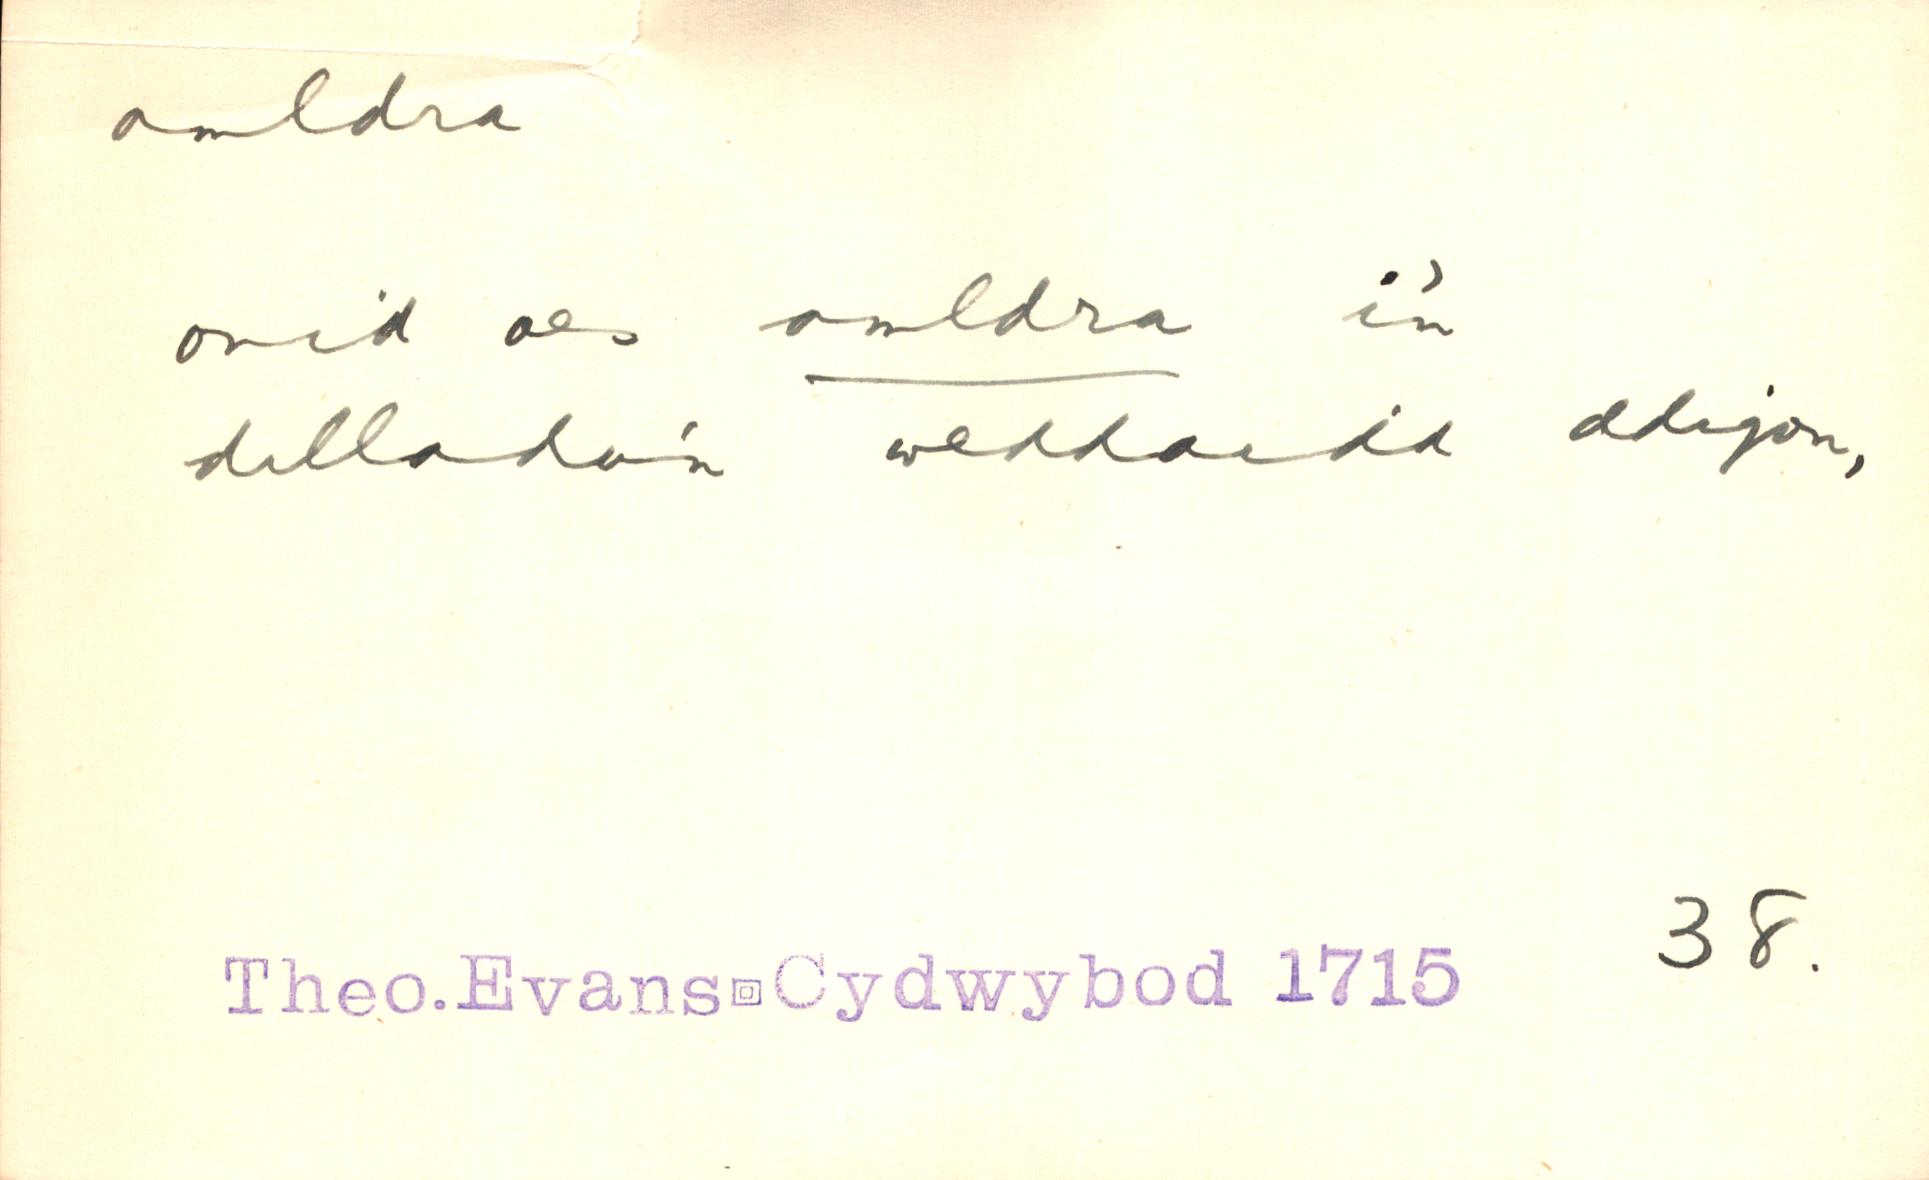 amldra
onid oes amldra i'n
dilladu'n weddaidd ddigon,
38.
Theo.Evans Cydwybod 1715